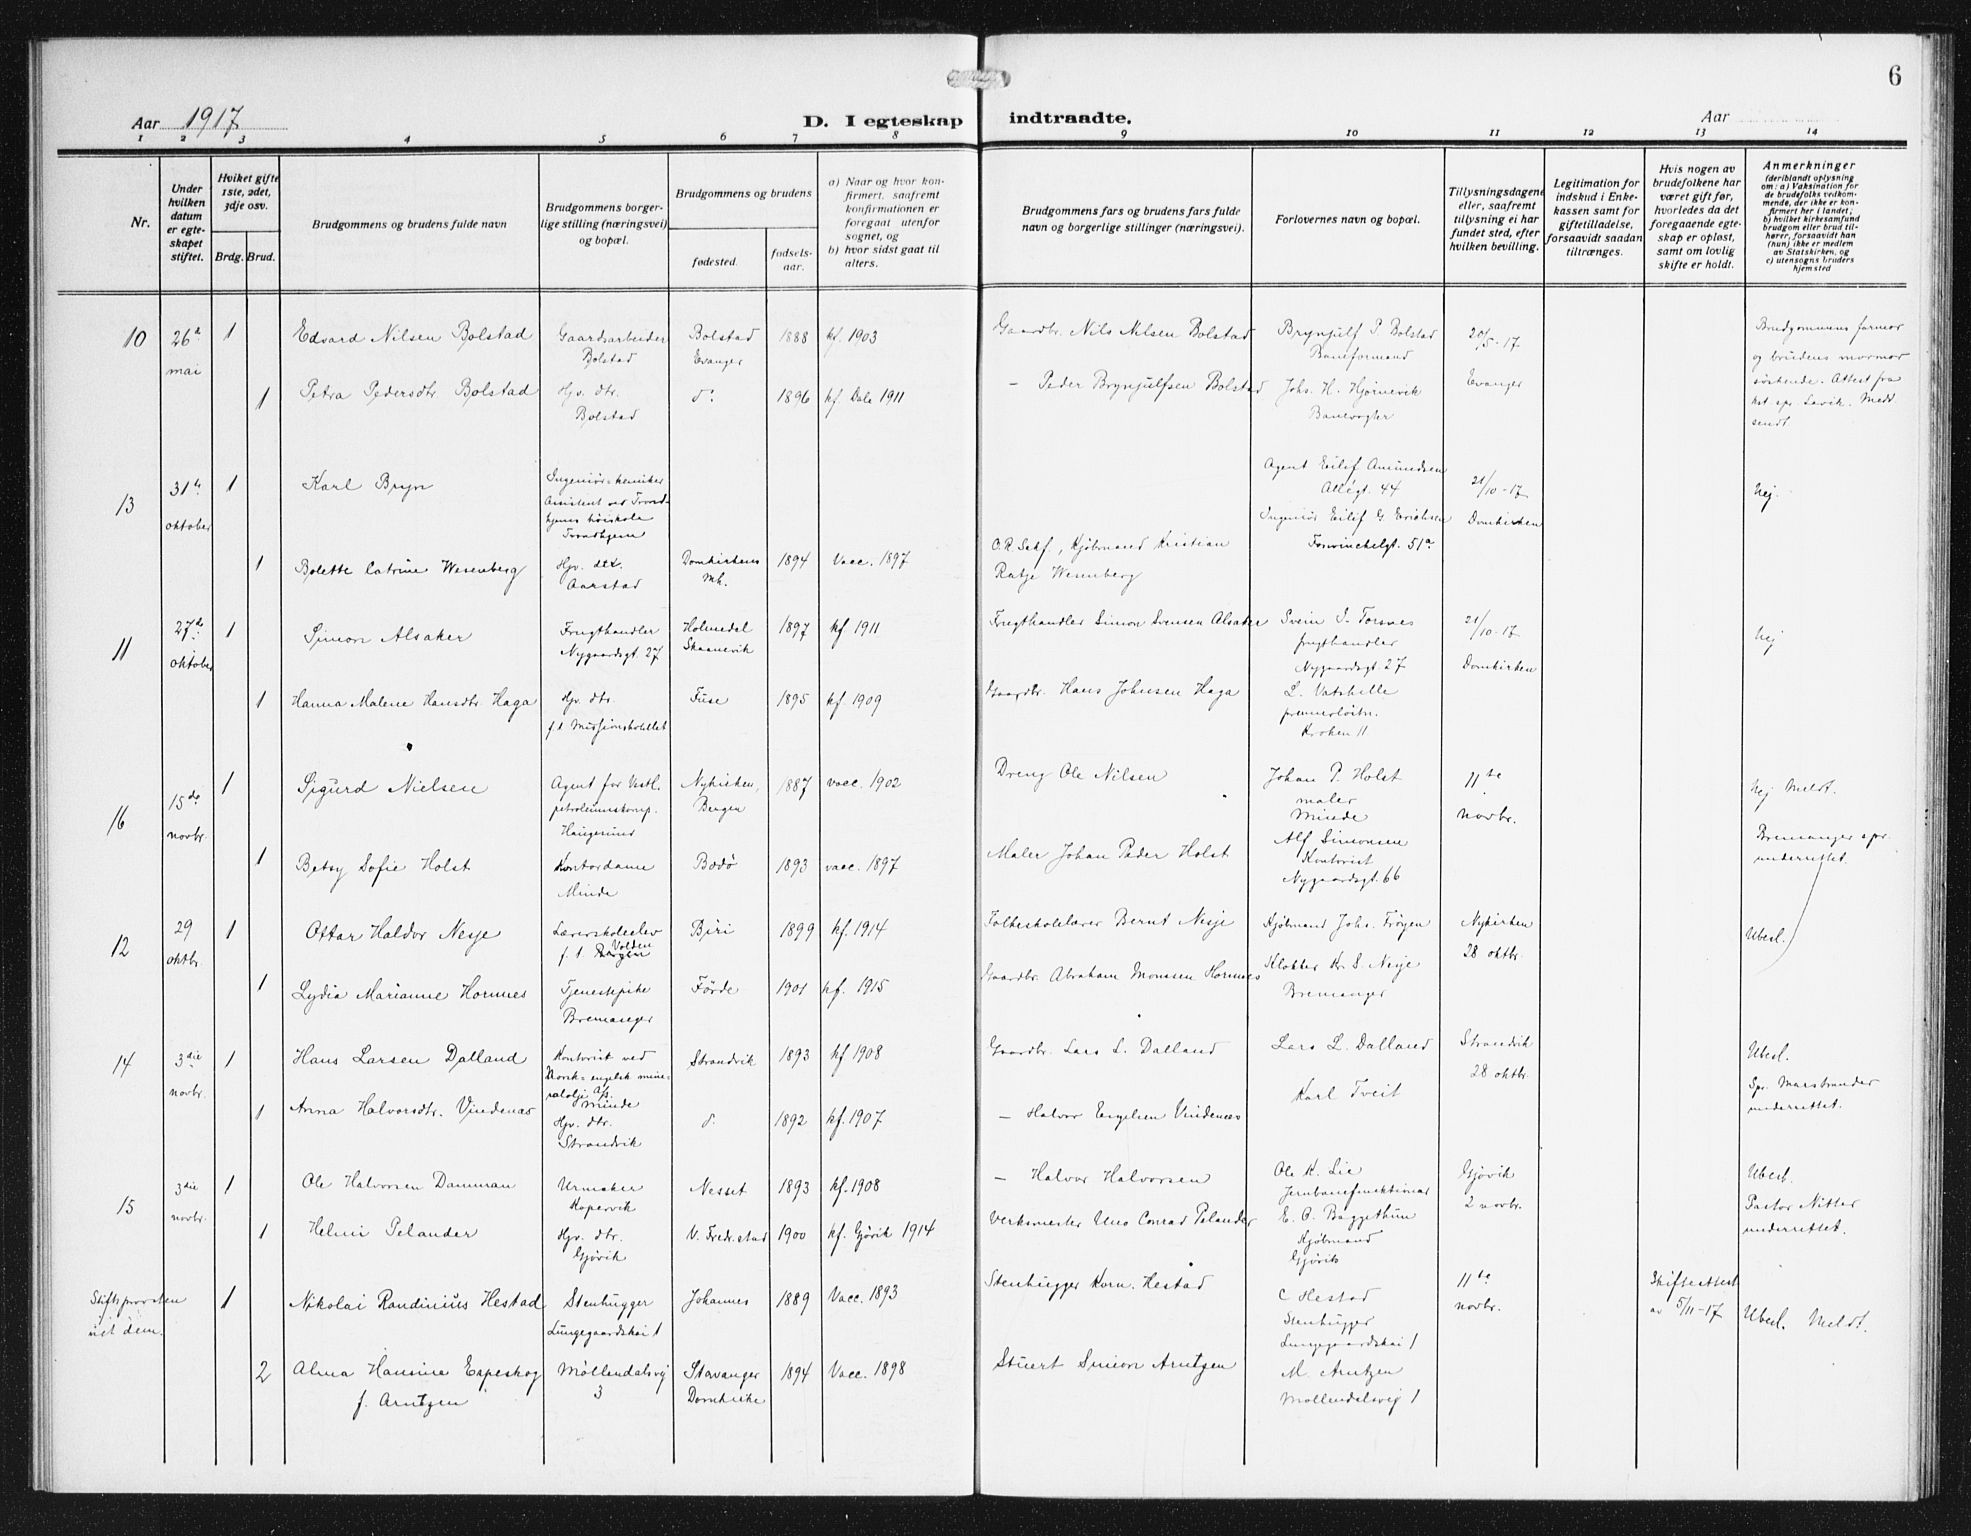 6
Aar 1917
D. I egteskap indtraadte.
Aar
1 2 3 4 5 6 7 8 9 10 11 12 13 14
Nr.
Under hvilken datum er egte- skapet stiftet.
Hviket gifte 1ste, 2det, 3dje osv.
Brdg. Brud.
Brudgommens og brudens fulde navn
Brudgommens borger- lige stilling (næringsvei) og bopæl.
Brudgommens og brudens
fødested.
fødsels- aar.
a) Naar og hvor kon- firmert, saafremt konfirmationen er foregaat utenfor sognet, og
b) hvor sidst gaat til alters.
Brudgommens fars og brudens fars fulde navn og borgerlige stillinger (næringsvei).
Forlovernes navn og bopæl.
Tillysningsdagene eller, saafremt tillysning ei har fundet sted, efter hvilken bevilling.
Legitimation for indskud i Enke- kassen samt for giftetilladelse, forsaavidt saadan tiltrænges.
Hvis nogen av brudefolkene har været gift før, hvorledes da det foregaaende egte- skap er opløst, samt om lovlig skifte er holdt.
Anmerkninger (deriblandt oplysning om: a) Vaksination for de brudefolks vedkom- mende, der ikke er kon- firmert her i landet; b) hvilket kirkesamfund brudgom eller brud til- hører, forsaavidt han (hun) ikke er medlem av Statskirken, og c) utensogns bruders hjemsted
10
26de mai
1
Edvard Nilsen Bolstad
Gaardsarbeider Bolstad
Bolstad Evanger
1888
kf. 1903
Gaardbr. Nils Nilsen Bolstad
Brynjulf P. Bolstad Baneformand
20/5-17
Evanger
Brudgommens farmor og brudens mormor søskende. Attest fra
spr. Lavik. Medd sendt.
1
Petra Pedersdtr Bolstad
Hjv. dtr. Bolstad
do
1896
kf. Dale 1911
— Peder Brynjulfsen Bolstad
Johs. H. Hjørnevik Banevogter
13
31te oktober
1
Karl Bryn
Ingeniør-kemiker Assistent ved Trond- hjems høiskole Trondhjem
Agent Eilif Amundsen Allégt. 44
Ingeniør Eilif G. Erichsen
51a
21/10-17
Domkirken
Nej.
1
Bolette Catrine Wesenberg
Hjv. dtr. Aarstad
Domkirkens Mh.
1894
Vacc. 1897
O.R. Sakf., Kjøbmand Kristian Ratje Wesenberg
11
27de oktober
1
Simon Alsaker
Frugthandler Nygaardsgt. 27
Holmedal Skaanevik
1897
kf 1911
Frugthandler Simon Svensen Alsaker
Svein S. Torsnes frugthandler Nygaardsgt. 27
21/10-17
Domkirken
Nej
1
Hanna Malene Hansdtr. Haga
Hjv. dtr. f.t. Missjonshotellet
Fuse
1895
kf. 1909
Gaardbr. Hans Johnsen Haga
L. Vatshelle premierløitn. Kroken 11
16
15de novbr.
1
Sigurd Nielsen
Agent for Vestl. petroleumskomp. Haugesund
Nykirken, Bergen
1887
vacc. 1902
Dreng Ole Nilsen
Johan P. Holst maler Minde
11te novbr.
Nej Meldt.
1
Betsy Sofie Holst
Kontordame Minde
Bodø
1893
vacc. 1897
Maler Johan Peder Holst
Alf Simonsen Kontorist Nygaardsgt. 66
Bremanger spr. underrettet.
12
29 oktbr.
1
Ottar Haldor Nesje
Lærerskoleelev f.t. Bergen Volden
Biri
1899
kf. 1914
Folkeskolelærer Bernt Nesje
Kjøbmand Johs. Frøyen
Nykirken 28 oktbr.
Ubesl.
1
Lydia Marianne Hornnes
Tjenestepike Bremanger
Førde
1901
kf. 1915
Gaardbr. Abraham Monssen Hornnes
Klokker Kr. S. Nesje Bremanger
14
3die novbr.
1
Hans Larsen Dalland
Kontorist ved Norsk-engelsk mine- ralolje A/S. Minde
Strandvik
1893
kf 1908
Gaardbr. Lars L. Dalland
Lars L. Dalland
Strandvik 28 oktbr.
Ubesl.
Spr. Marstrander underrettet.
1
Anna Halvorsdtr. Vindenæs
Hjv. dtr. Strandvik
do
1892
kf. 1907
— Halvor Engelsen Vindenæs
Karl Tveit
15
3die novbr.
1
Ole Halvorsen Damman
Urmaker Kopervik
Nesset
1893
kf. 1908
— Halvor Halvorsen
Ole K. Lie Jernbanefunktionær
Gjøvik 2 novbr.
Ubesl.
Pastor Nitter underrettet.
1
Helmi Pelander
Hjv. dtr. Gjøvik
V. Fredr.stad
1900
kf. Gjøvik 1914
Verksmester Uno Conrad Pelander
E. C. Baggethun Kjøbmand Gjøvik
Stiftsprovsten
1
Nikolai Randinius Hestad
Stenhugger Lungegaardskai 1
Johannes
1889
Vacc. 1893
Stenhugger Korn. Hestad
C Hestad Stenhugger Lungegaardskai 1
11te novbr.
Skifteattest av 5/11-17
Ubesl. Meldt.
2
Alma Hansine Espeskog f. Arntzen
Møllendalsvei 3
Stavanger Domkirke
1894
Vacc. 1898
Stuert Simon Arntzen
M. Arntzen Møllendalsvig 1